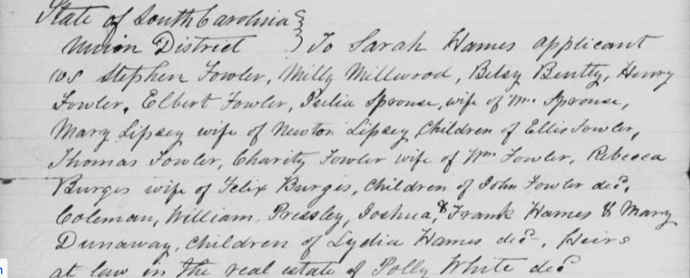 State of South Carolina }
Union District } To Sarah Hames applicant
vs Stephen Fowler, Milly Millwood, Betsy Bentty, Henry
Fowler, Elbert Fowler, Isilia Sprouse, wife of Wm Sprouse,
Mary Lipsey wife of Newton Lipsey, Children of Ellis Fowler,
Thomas Fowler, Charity Fowler wife of Wm Fowler, Rebecca
Burges wife of Felix Burges, Children of John Fowler decd,
Coleman, William, Pressley, Joshua, & Frank Hames & Mary
Dunaway, Children of Lydia Hames decd, Heirs
at law in the real estate of Polly White decd